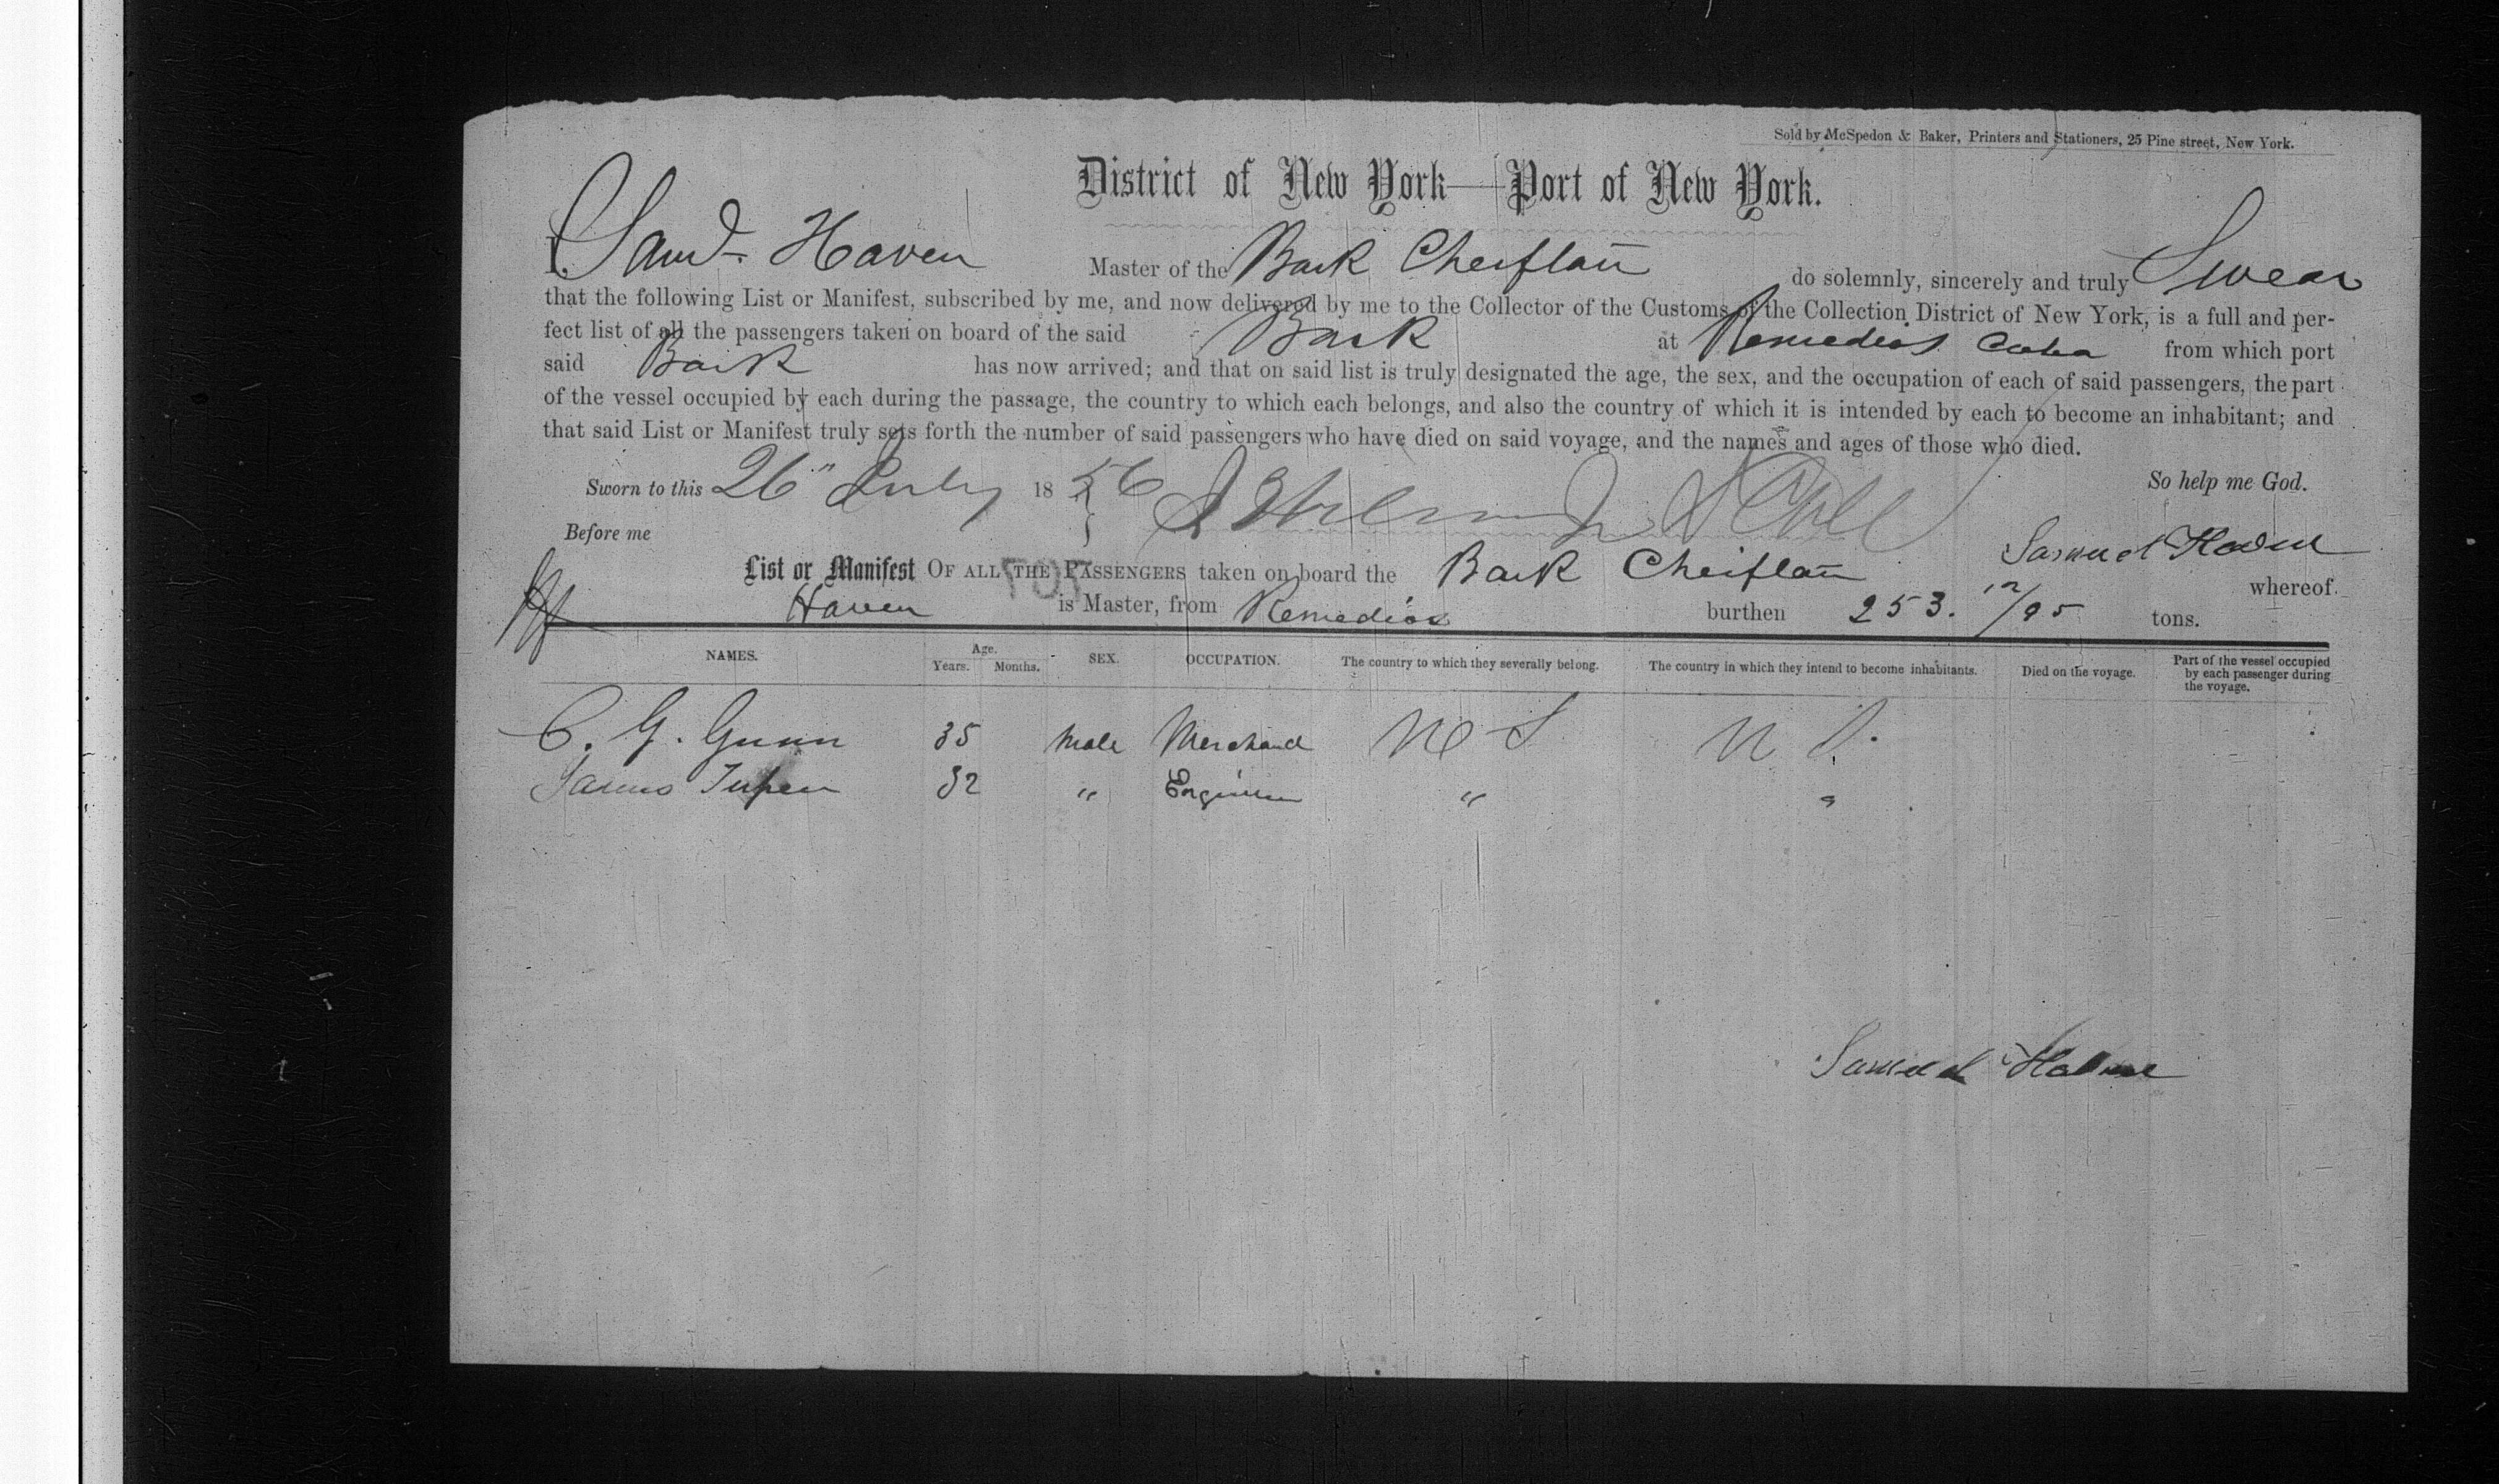 Sold by McSpedon & Baker, Printers and Stationers, 25 Pine street, New York.
District of New York—Port of New York.
I, Saml. Haven Master of the Bark Cheiftan do solemnly, sincerely and truly Swear
that the following List or Manifest, subscribed by me, and now delivered by me to the Collector of the Customs of the Collection District of New York, is a full and per-
fect list of all the passengers taken on board of the said Bark at Remedios Cuba from which port
said Bark has now arrived; and that on said list is truly designated the age, the sex, and the occupation of each of said passengers, the part
of the vessel occupied by each during the passage, the country to which each belongs, and also the country of which it is intended by each to become an inhabitant; and
that said List or Manifest truly sets forth the number of said passengers who have died on said voyage, and the names and ages of those who died.
Sworn to this 26" July 1856 So help me God.
Before me Samuel Haven
List or Manifest OF ALL THE PASSENGERS taken on board the Bark Cheiftan whereof
Haven is Master, from Remedios burthen 253. 12/95 tons.
NAMES. Age. Years. Months. SEX. OCCUPATION. The country to which they severally belong. The country in which they intend to become inhabitants. Died on the voyage. Part of the vessel occupied by each passenger during the voyage.
C. G. Gunn 35 Male Merchand U S U S.
James 32 " Engineer " "
Samuel Haven